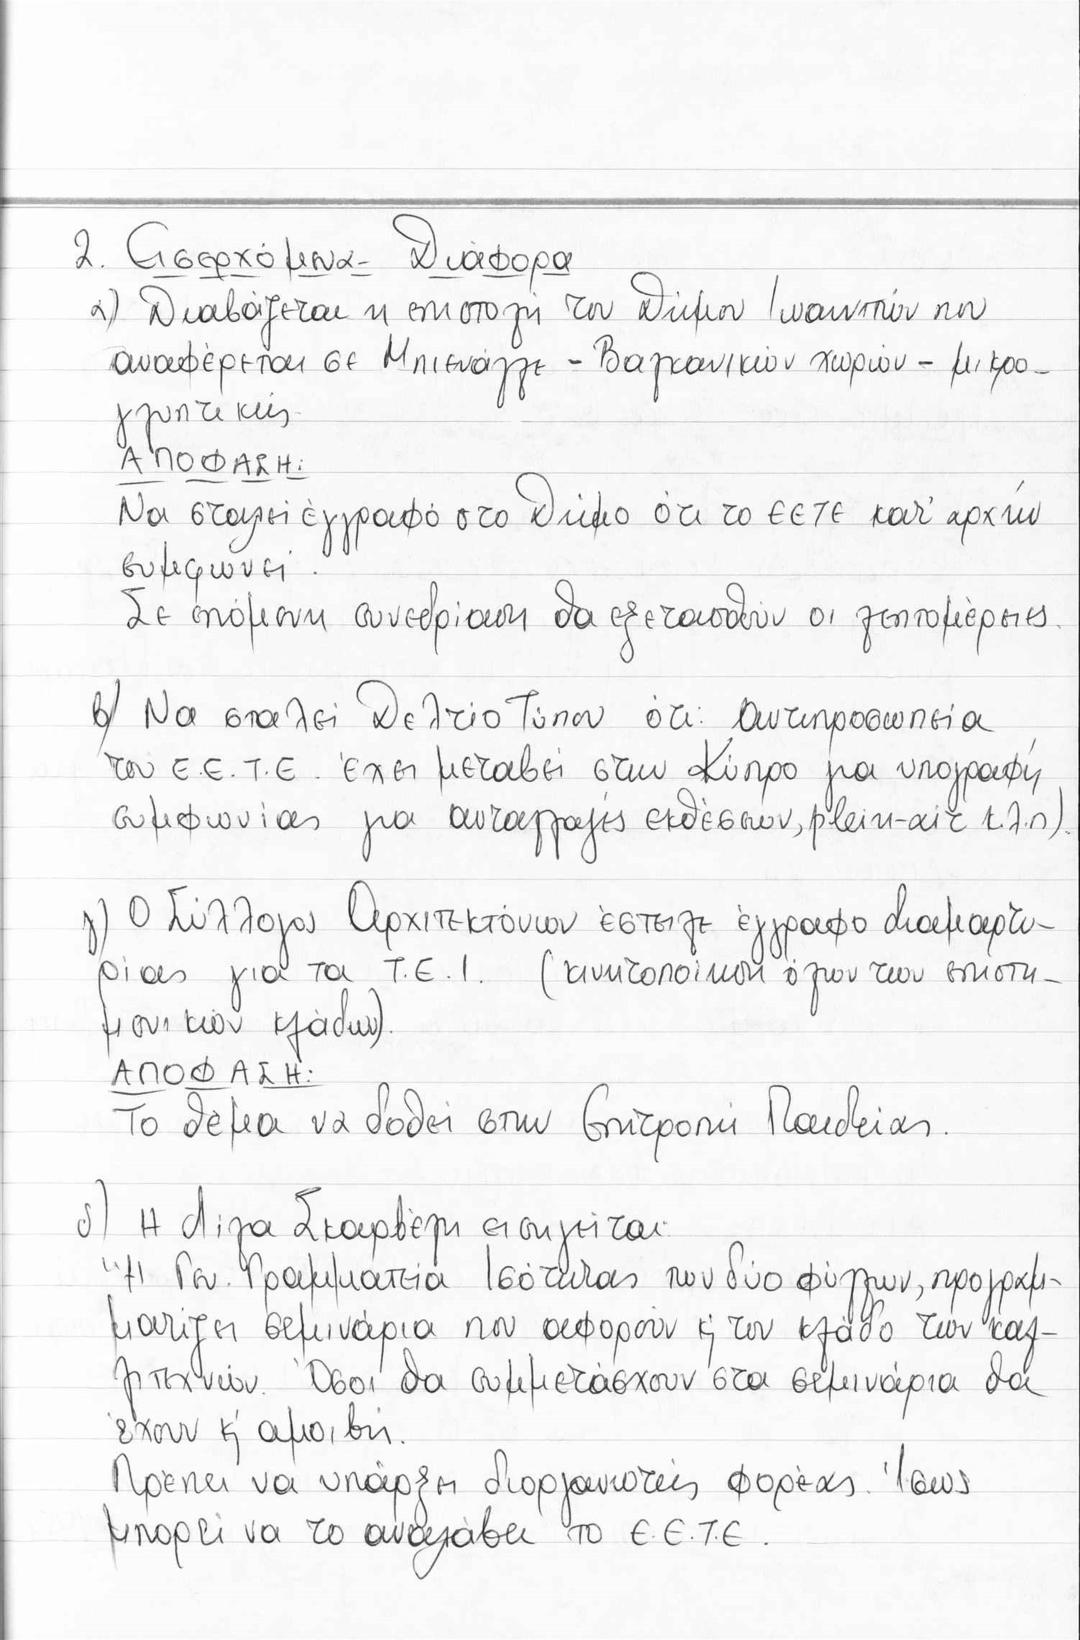 2. Εισερχόμενα - Διάφορα
α) Διαβάζεται η επιστολή του Δήμου Ιωαννιτών που
αναφέρεται σε Μπιενάλλε - Βαλκανικών χωρών - μικρο-
γλυπτικής.
ΑΠΟΦΑΣΗ:
Να σταλεί έγγραφο στο Δήμο ότι το ΕΕΤΕ κατ' αρχήν
συμφωνεί.
Σε επόμενη συνεδρίαση θα εξετασθούν οι λεπτομέρειες.
β) Να σταλεί Δελτίο Τύπου ότι: αντιπροσωπεία
του Ε.Ε.Τ.Ε. έχει μεταβεί στην Κύπρο για υπογραφή
συμφωνίας για ανταλλαγές εκθέσεων, plein-air κ.λ.π).
γ) Ο Σύλλογος Αρχιτεκτόνων έστειλε έγγραφο διαμαρτυ-
ρίας για τα Τ.Ε.Ι. (κινητοποίηση όλων των επιστη-
μονικών κλάδων).
ΑΠΟΦΑΣΗ:
Το θέμα να δοθεί στην Επιτροπή Παιδείας.
δ) Η Λίλα Σκαρβέλη εισηγείται:
"Η Γεν. Γραμματεία Ισότητας των δύο φύλλων, προγραμ-
ματίζει σεμινάρια που αφορούν κ' τον κλάδο των καλ-
λιτεχνών. Όσοι θα συμμετάσχουν στα σεμινάρια θα
έχουν κ' αμοιβή.
Πρέπει να υπάρξει διοργανωτής φορέας. Ίσως
μπορεί να το αναλάβει το Ε.Ε.Τ.Ε.